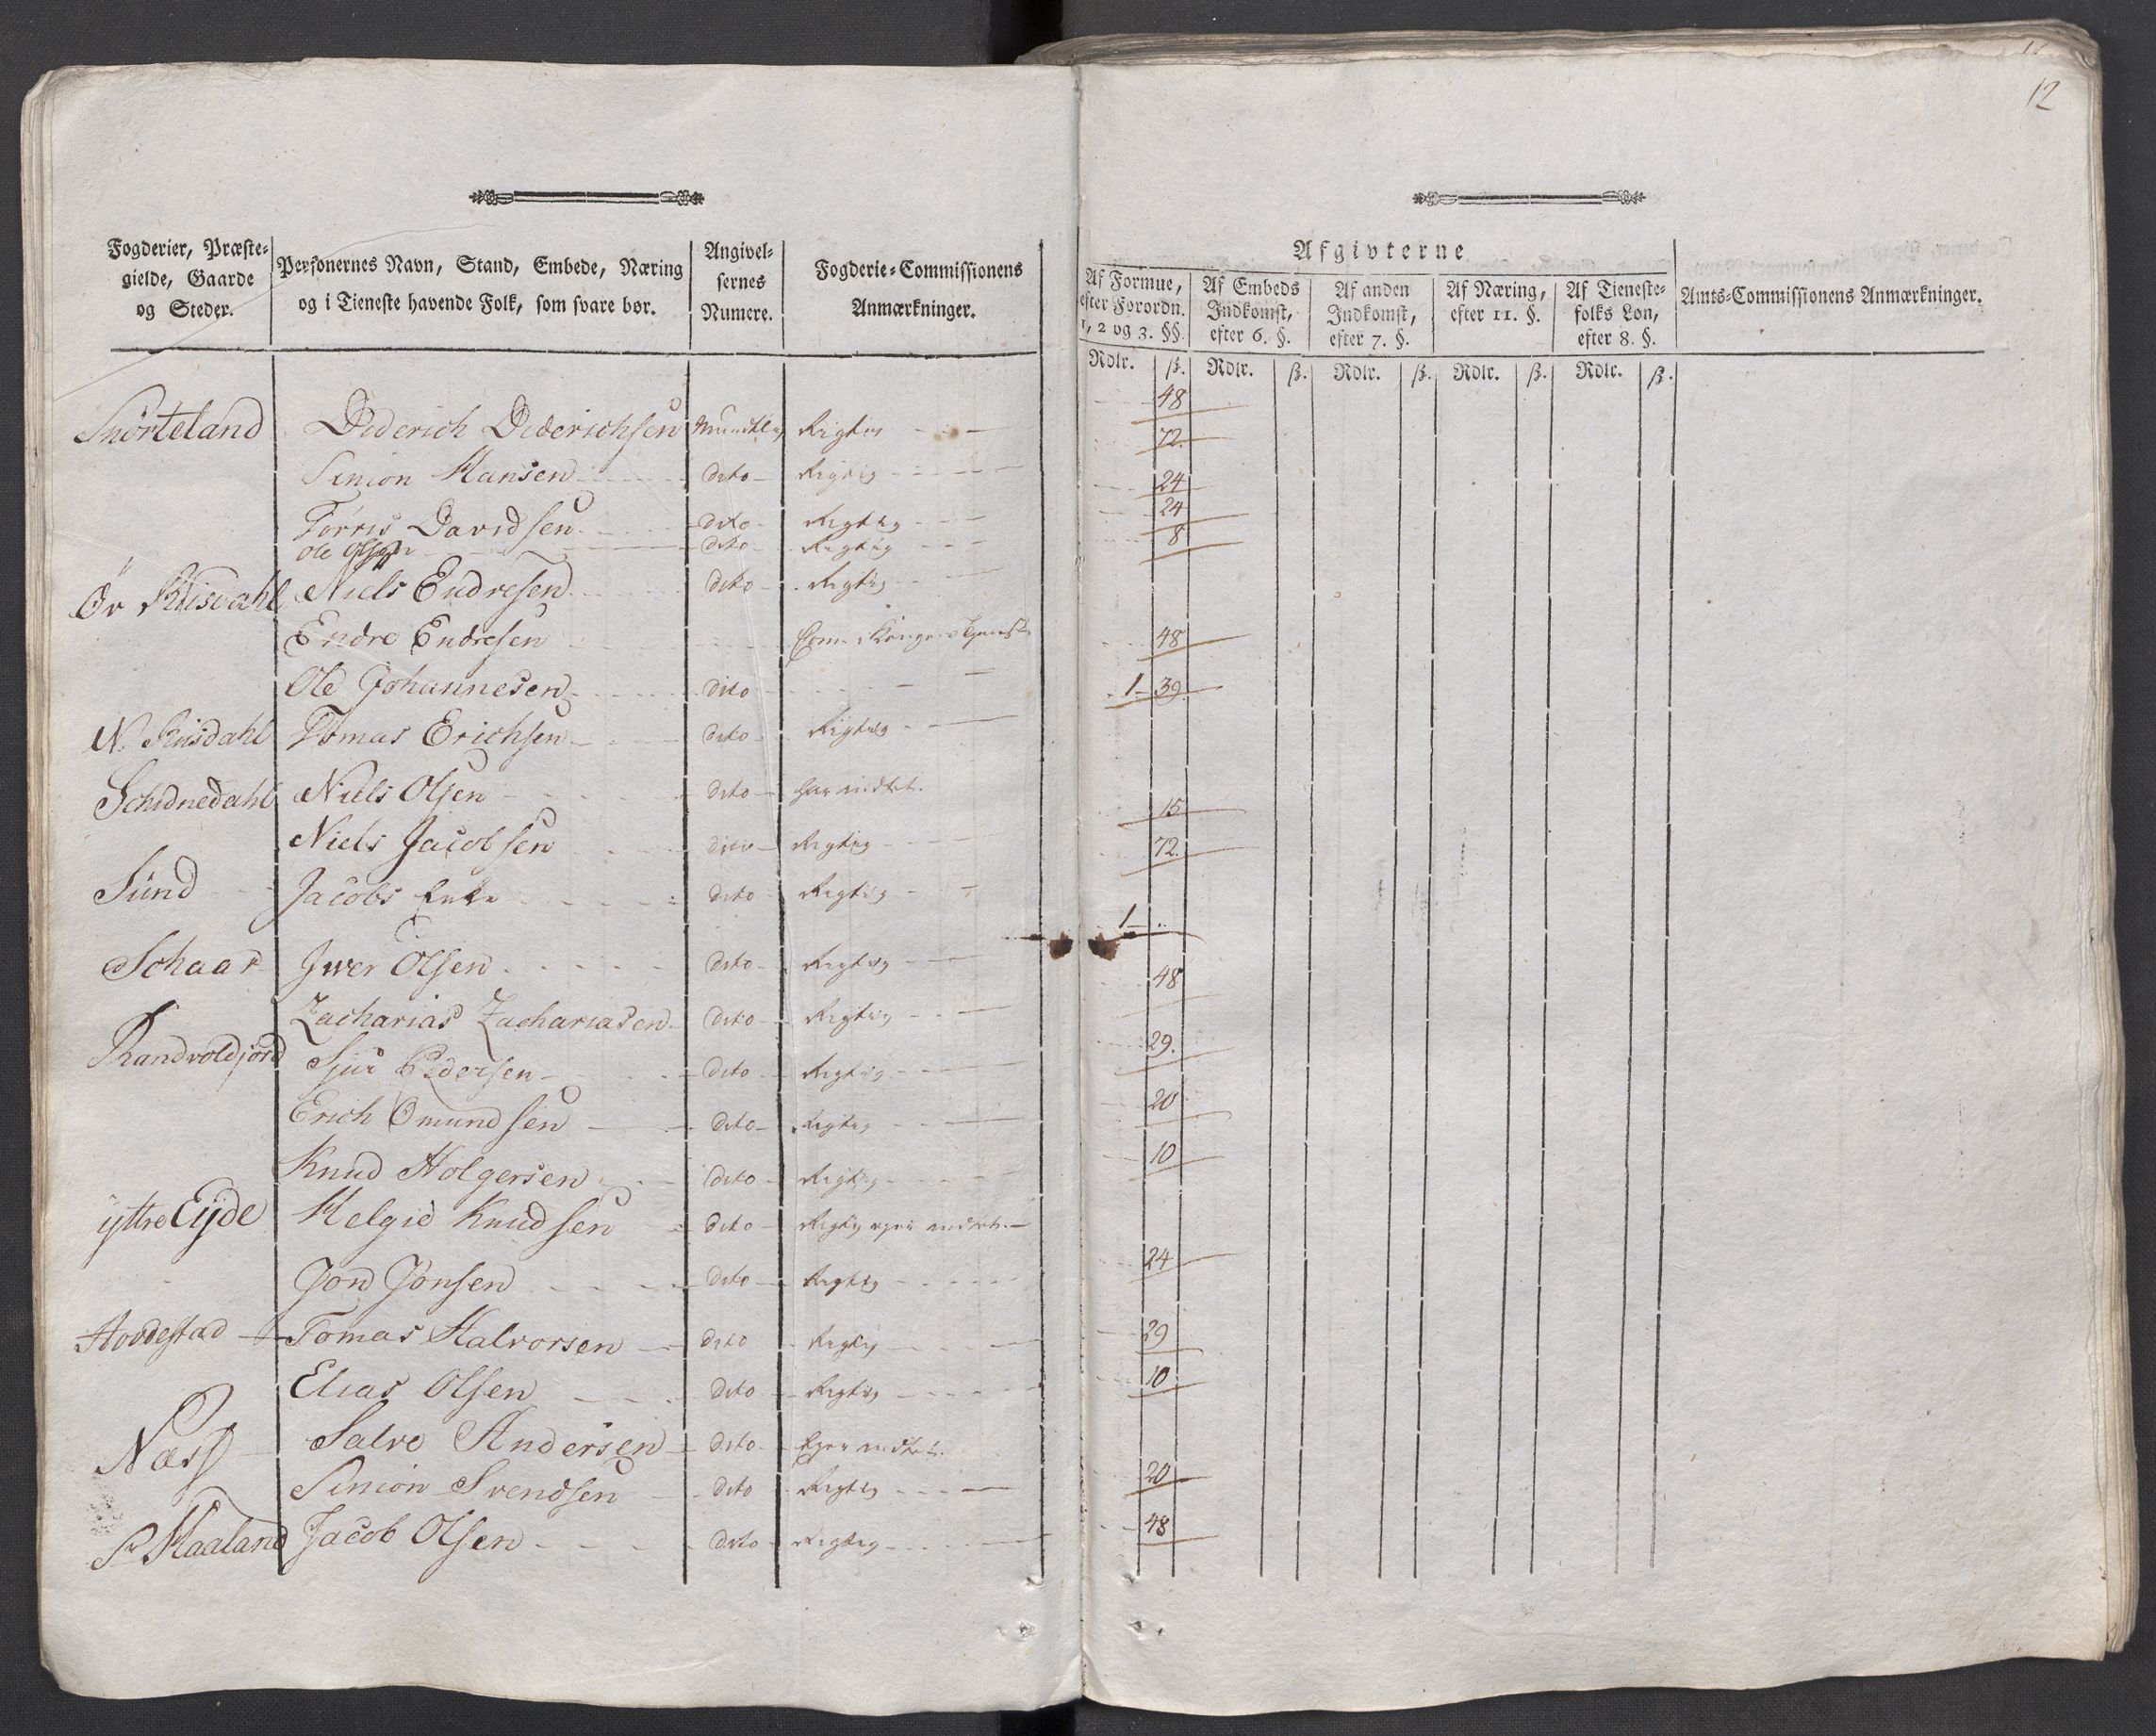 12
Fogderier, Præste-
gielde, Gaarde
og Steder.
Personernes Navn, Stand, Embede, Næring
og i Tieneste havende Folk, som svare bør.
Angivel-
sernes
Numere.
Fogderie-Commissionens
Anmærkninger.
Afgivterne
Af Formue,
efter Forordn.
1, 2 og 3. §§.
Af Embeds
Indkomst,
efter 6. §.
Af anden
Indkomst,
efter 7. §.
Af Næring,
efter 11. §.
Af Tieneste-
folks Løn,
efter 8. §.
Amts-Commissionens Anmærkninger.
Rdlr. ß. Rdlr. ß. Rdlr. ß. Rdlr. ß. Rdlr. ß.
Snörteland Diderich Diderichsen Mundtlig Rigtig 48
Simon Hansen dito Rigtig 72.
Törris Davidsen dito Rigtig 24
Ole Olsen dito Rigtig 24
Ör Riisdahl Niels Endresen dito Rigtig 8
Endre Endresen
Ole Johannesen dito 48
N. Riisdahl Tomas Erichsen dito Rigtig 1 39.
Schidnedahl Niels Olsen dito har indtet.
Niels Jacobsen dito Rigtig 15
Sund Jacobs Enke dito Rigtig 72.
Schaar Iwer Olsen dito Rigtig 1
Zacharias Zachariasen dito Rigtig 48
Randvoldjord Sjur Pedersen dito Rigtig 29.
Erich Omundsen dito Rigtig 20
Knud Holgersen dito Rigtig 10
ÿttre Eÿde Helgie Knudsen dito Rigtig ejer indtet.
Jon Jonsen dito Rigtig 24
Hovdestad Tomas Halvorsen dito Rigtig 29
Elias Olsen dito Rigtig 10
Næss Salve Andersen dito Ejer indtet.
Simon Svendsen dito Rigtig 20
Sr Haaland Jacob Olsen dito Rigtig 48